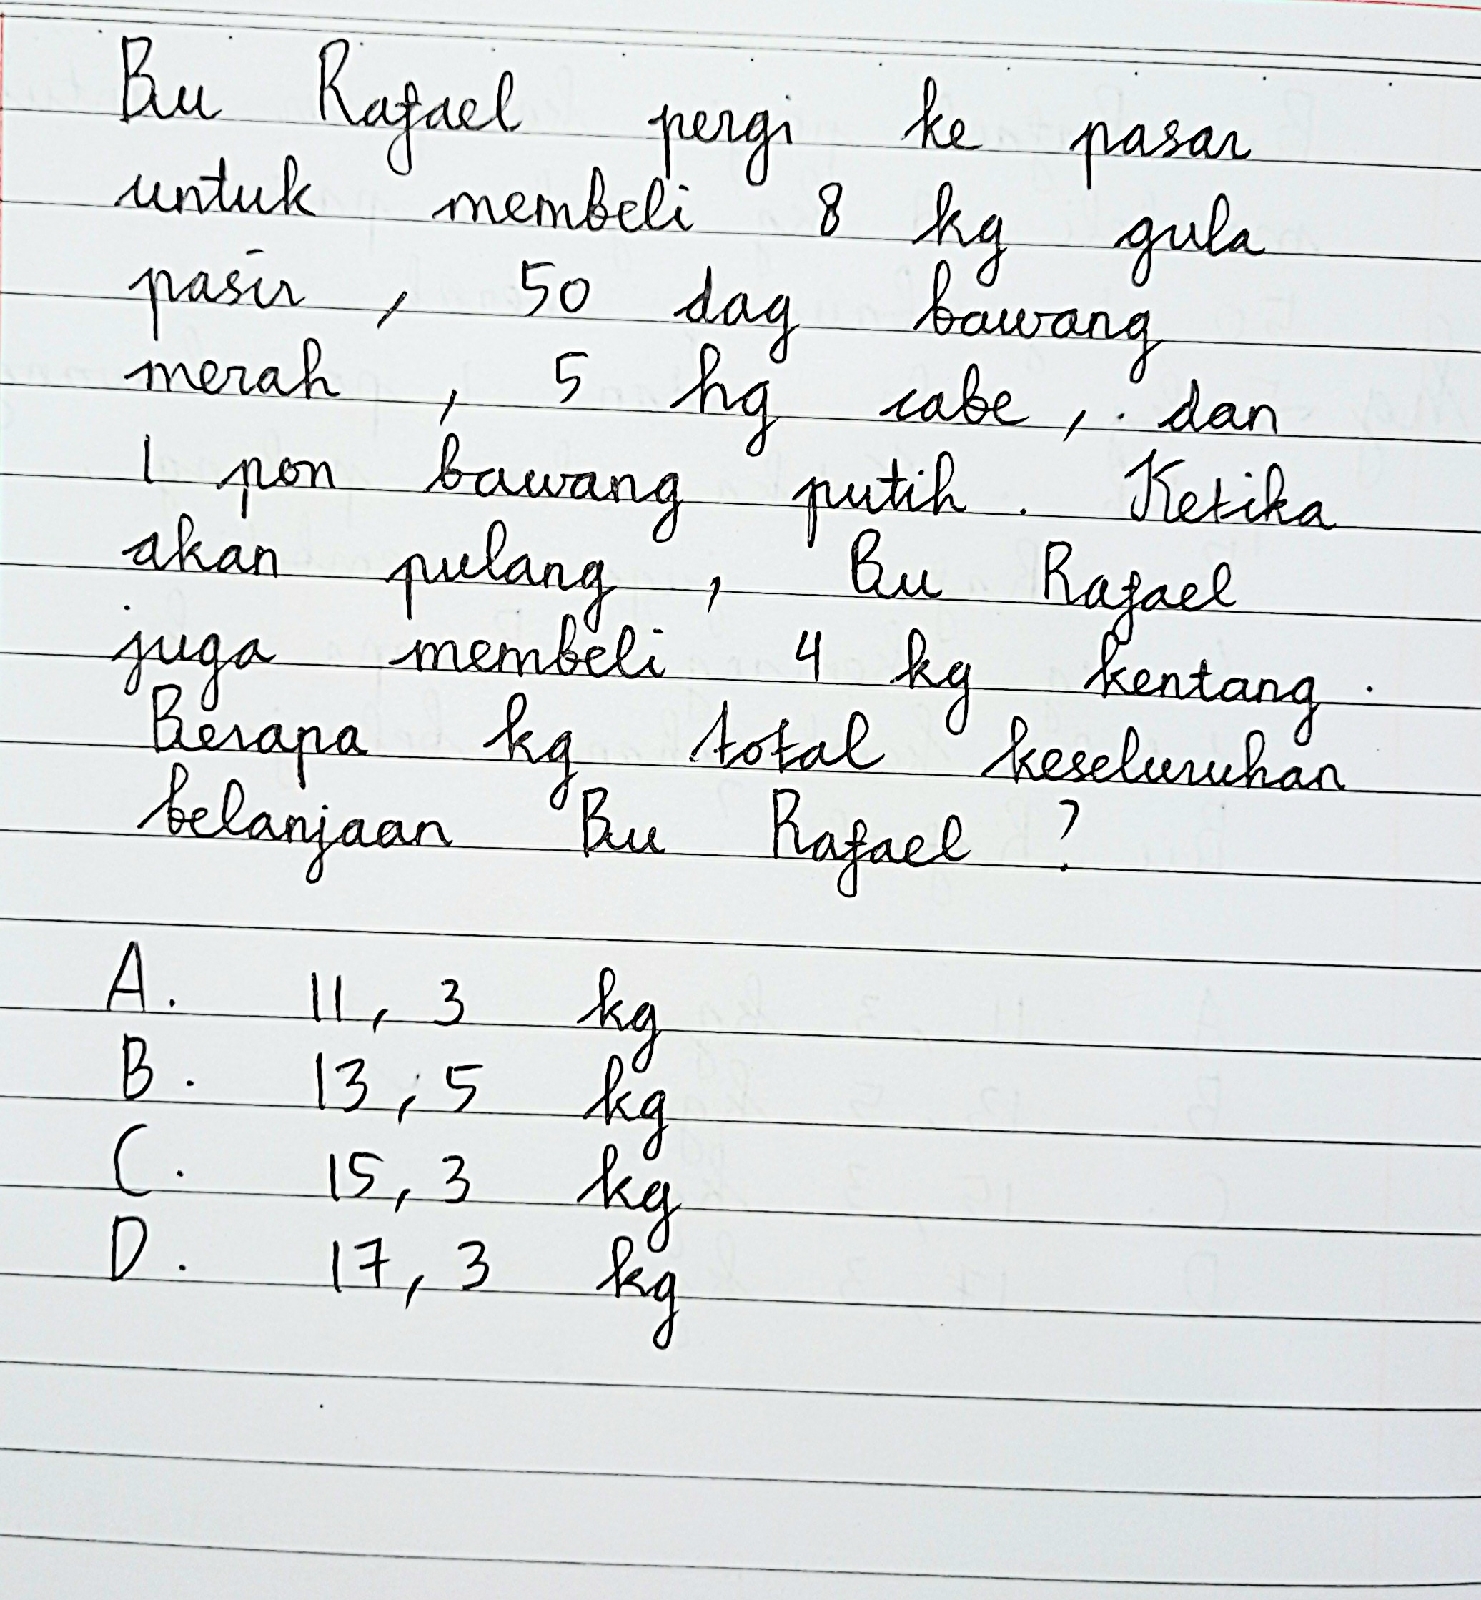 Bu Rafael pergi ke pasar
untuk membeli 8 kg gula
pasir, 50 dag bawang
merah, 5 hg cabe, dan
1 pon bawang putih. Ketika
akan pulang, Bu Rafael
juga membeli 4 kg kentang.
Berapa kg total keseluruhan
belanjaan Bu Rafael?
A. 11,3 kg
B. 13,5 kg
C. 15,3 kg
D. 17,3 kg